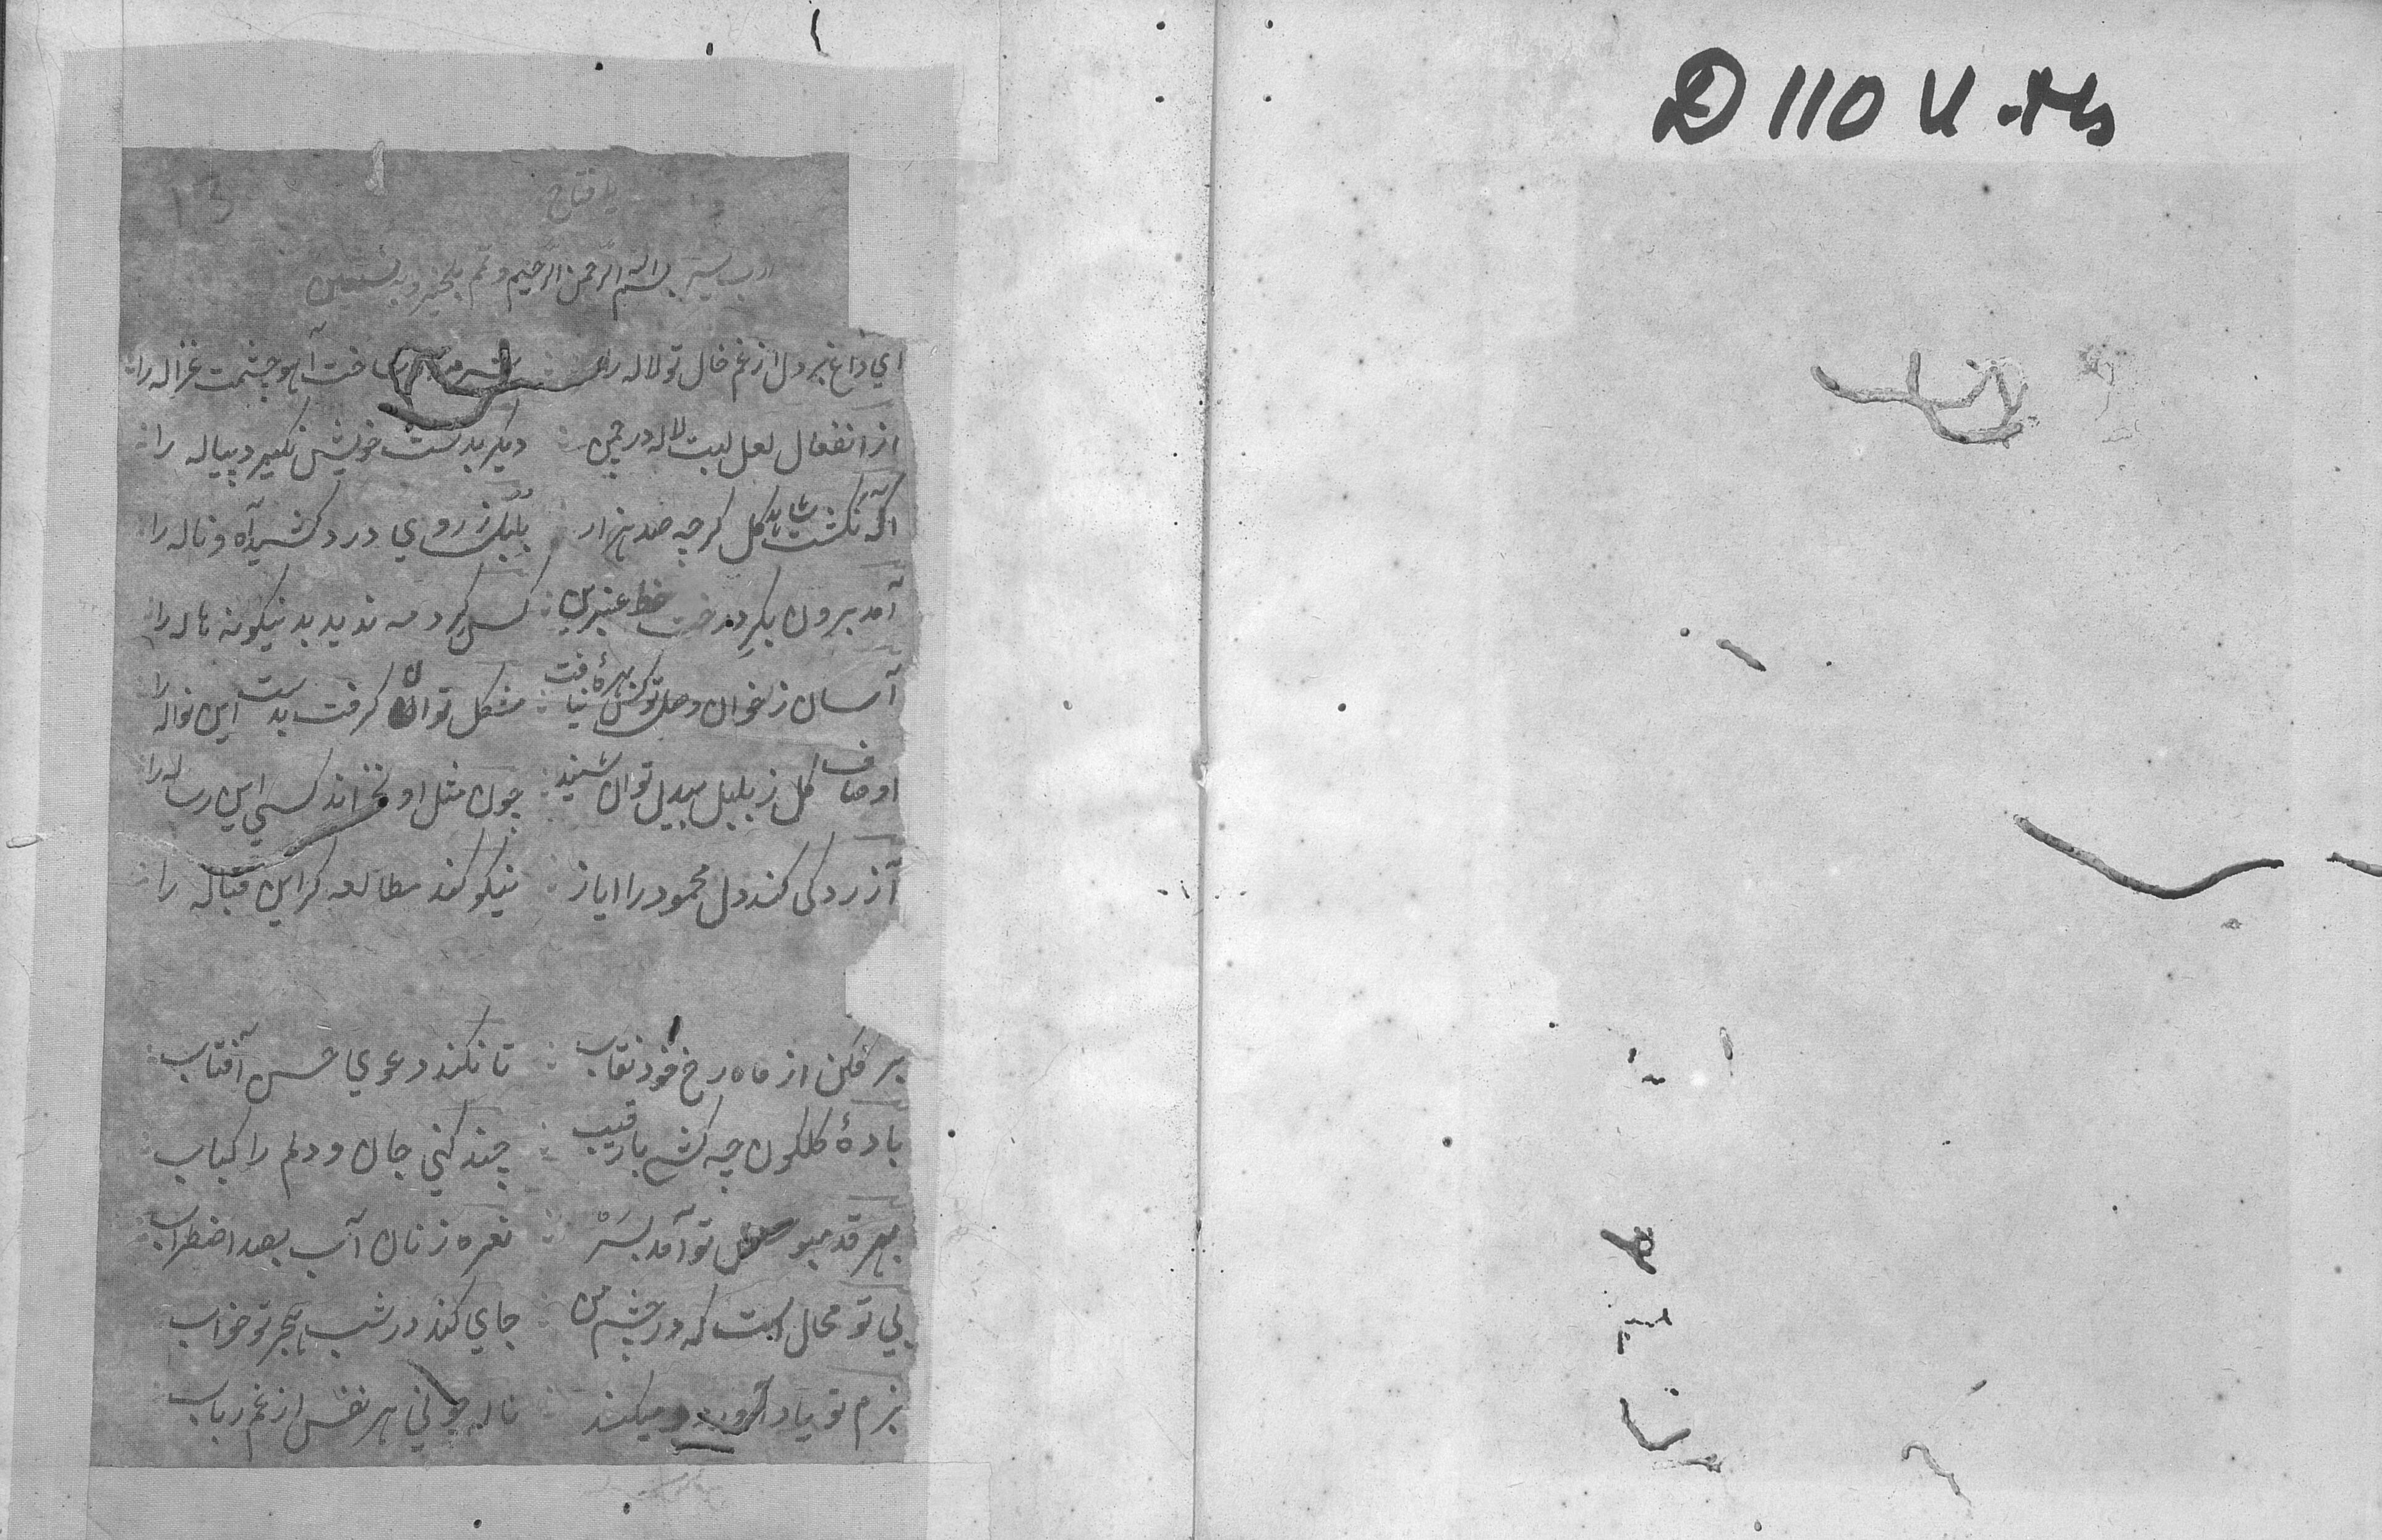 D 110 U
13
یا فتاح
رب یسر بسم الله الرحمن الرحیم و تمم بالخیر و به نستعین
ای داغ بر دل از غم خال تو لاله را ساخت آهو چشمت غزاله را
از انفعال لعل لبت لاله در چمن دیکر بدست خویش نکیرد پیاله را
کل کرچه صد هزار بلبل ز روی درد کشید آه و ناله را
آمد برون بکرد رخت خط عنبرین کس کرد مه ندید بدنیکونه هاله را
آسان ز خوان وصل تو کس بهرهٔ نیافت مشکل توان کرفت بدست این نواله را
اوصاف کل ز بلبل بیدل توان شنید چون مثل او نخواند کسی این رساله را
آزرد کی کند دل محمود را ایاز نیکو کند مطالعه کر این قباله را
بر فکن از ماه رخ خود نقاب تا نکند دعوی حسن آفتاب
بادهٔ کلکون چه کشی با رقیب چند کنی جان و دلم را کباب
بهر قدمبوس تو آمد بسر نعره زنان آب بصد اضطراب
بی تو محال است که در چشم من جای کند در شب هجر تو خواب
بزم تو یاد میکند ناله هر نفس از غم رباب